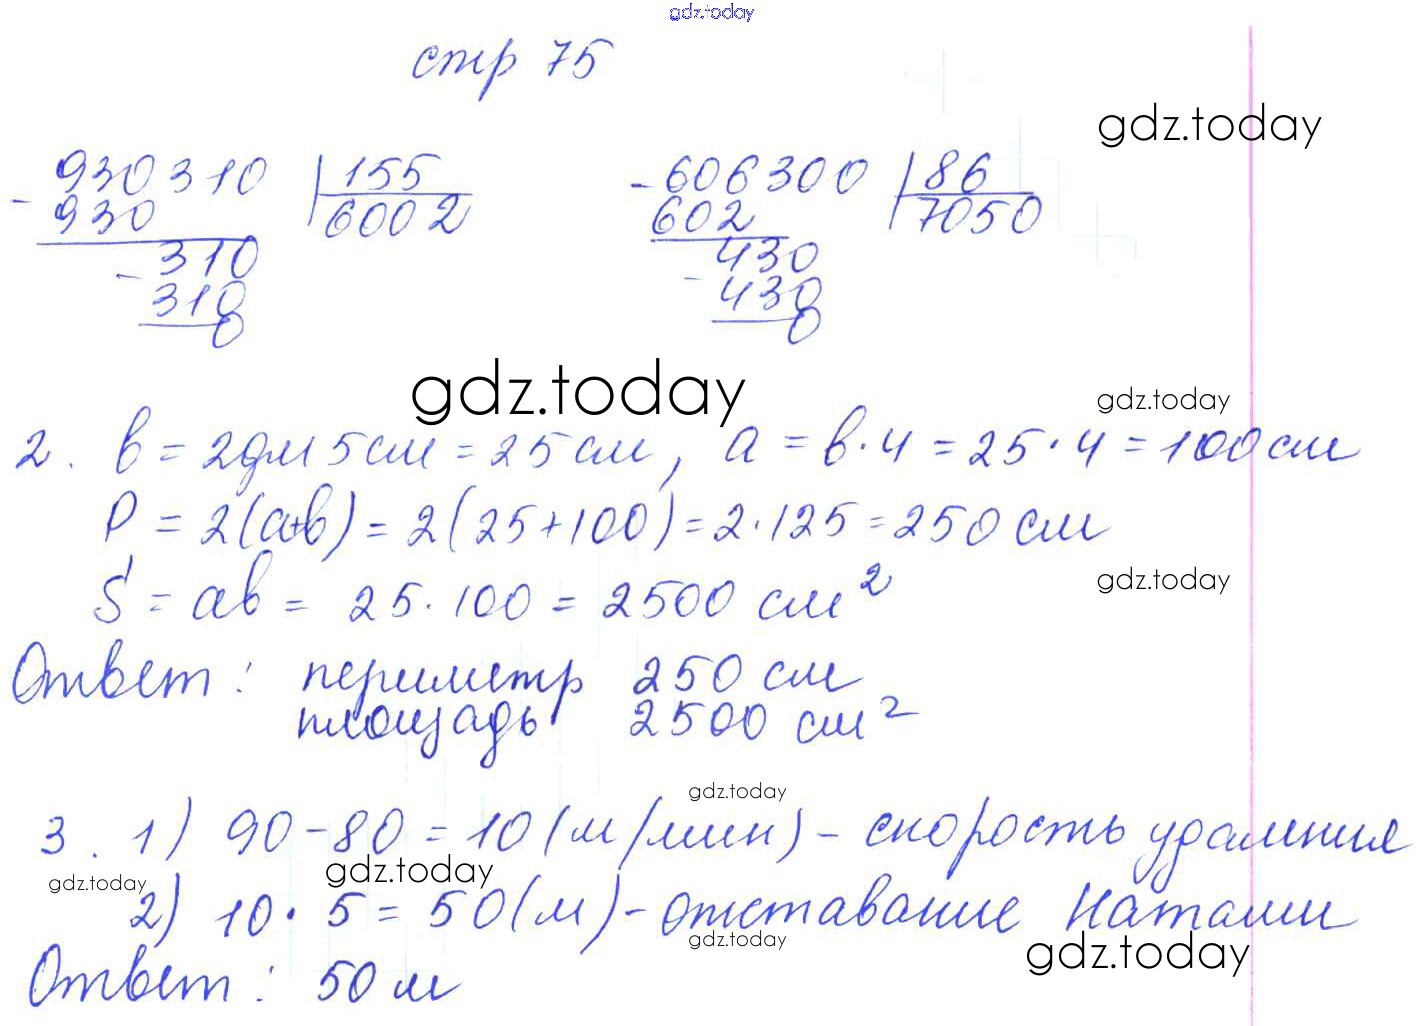 gdz.today
стр 75
gdz.today
- 930310 | 155
930 6002
- 310
310
0
- 606300 | 86
602 7050
- 430
430
0
gdz.today
gdz.today
2. в = 2дм 5см = 25 см, а = в · 4 = 25 · 4 = 100 см
Р = 2(а+в) = 2(25+100) = 2 · 125 = 250 см
S = ав = 25 · 100 = 2500 см²
gdz.today
Ответ: периметр 250 см
площадь 2500 см²
gdz.today
3. 1) 90 - 80 = 10 (м/мин) - скорость удаления
gdz.today gdz.today
2) 10 · 5 = 50 (м) - отставание Наташи
gdz.today gdz.today
Ответ: 50 м